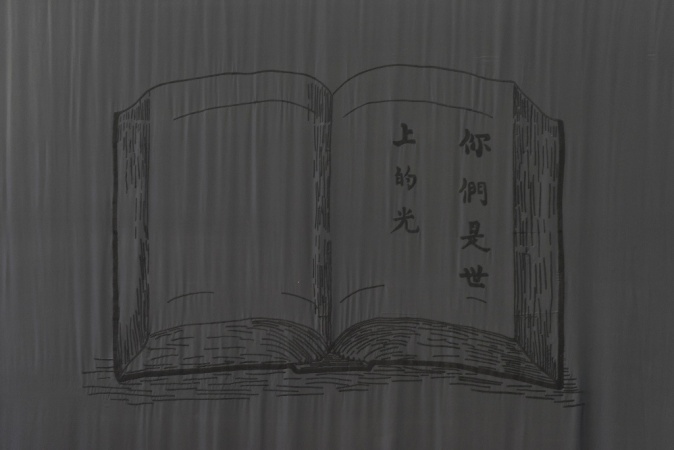 你們是世
上的光